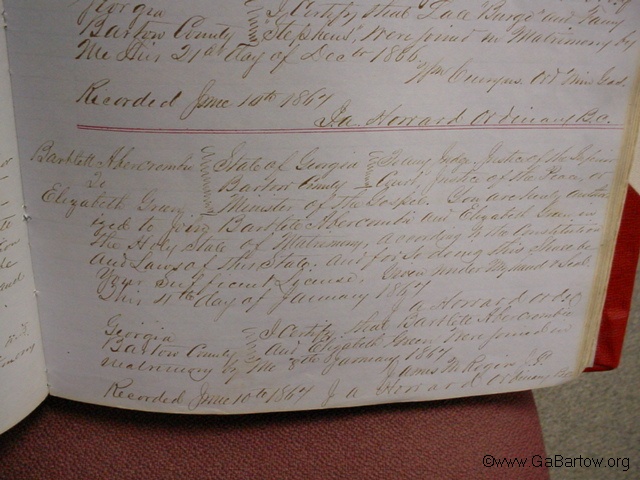 Georgia I Certify that Tate Burge and Fanny
Bartow County Stephens, were joined in Matrimony by
Me this 21st day of Decr 1866.
Wm Ord Min Gos.
Recorded June 10th 1867
J.a. Howard Ordinary B.C.
Bartlett Abercrombie State of Georgia To any Judge, Justice of the Inferior
To Bartow County Court, Justice of the Peace, or
Elizabeth Green Minister of the Gospel. You are hereby author
ized to Join Bartlett Abercrombie and Elizabeth Green, in
the Holy State of Matrimony, According to the Constitution
and Laws of this State. and for so doing this shall be
Your Sufficient License. Given under My hand & Seal
This 4th day of January 1867
J a Howard Ord
Georgia I Certify that Bartlett Abercrombie
Bartow County and Elizabeth Green were joined in
Matrimony by Me 8th January 1867
James M Rogers J.P.
Recorded June 10th 1867 J a Howard Ordinary
©www.GaBartow.org